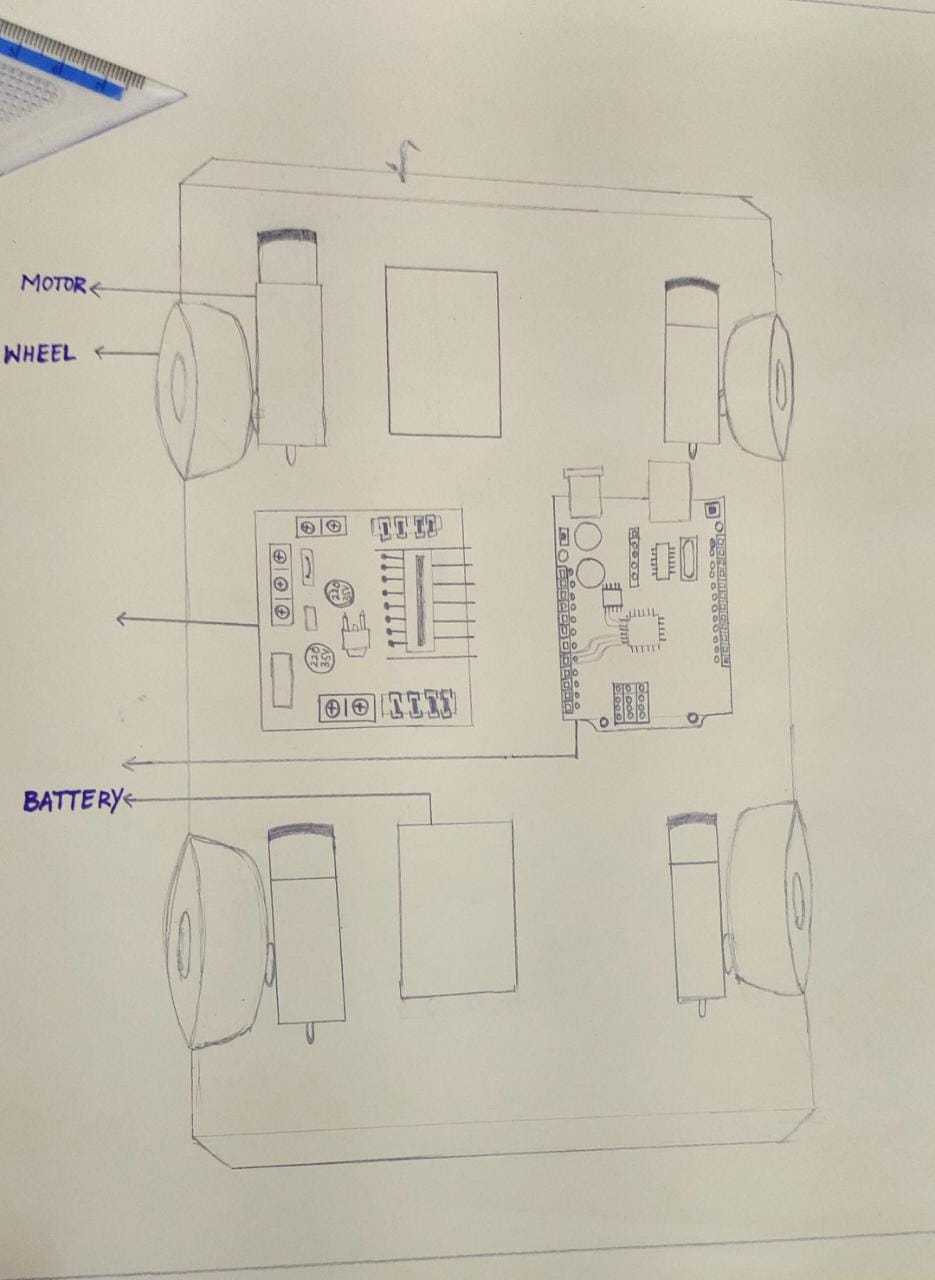 MOTOR
WHEEL
220
35V
220
35V
BATTERY